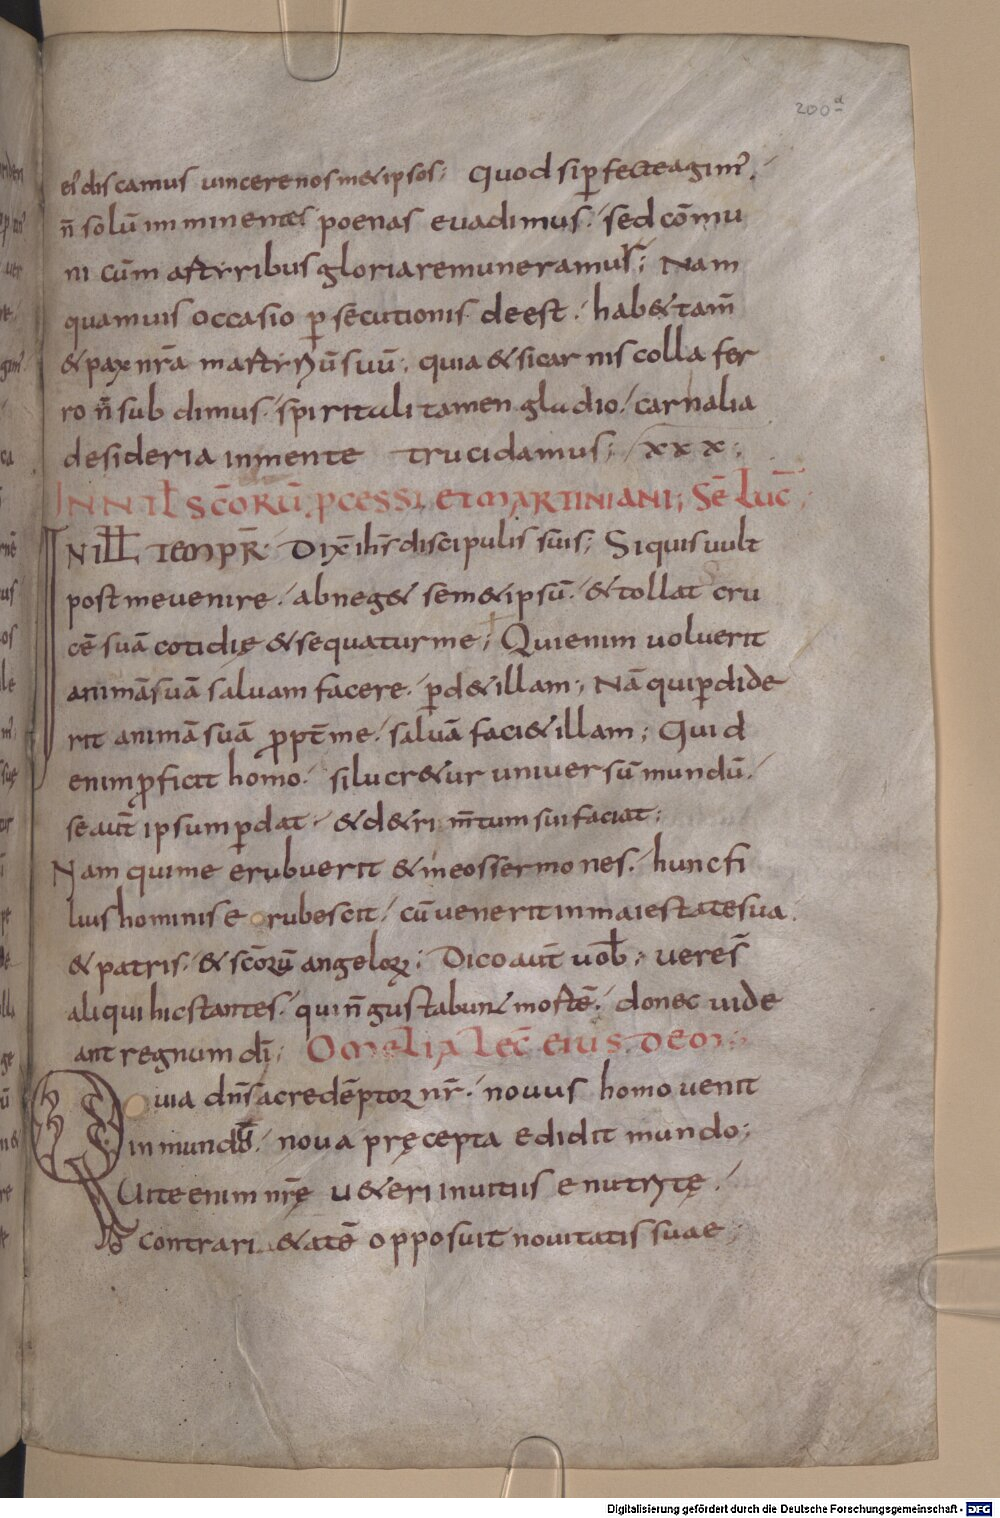 200a
ei' discamus vincere nos m&ipsos; Quod si ꝑfecte agim'.
n̄ solū imminentes poenas evadimus. sed cōmu
ni cūm aſtirribus gloria remuneramur; Nam
quamuis occasio ꝑsecutionis deest. hab& tam̄
& pax nr̄a martyriū suū; quia & si carnis colla fer
ro n̄ subdimus. spiritali tamen gladio. carnalia
desideria in mente trucidamus; XXX;
IN Nƚƚ SC̄ORŪ ꝓCESSI ET MARTINIANI; SE LUC̄;
IN ILL TEMPR̄ Dix̄ ih̄s discipulis suis; Si quis vult
post me venire. abneg& sem&ipsū. & tollat cru
cē suā cotidię & sequatur me; Qui enim voluerit
animā suā salvam facere. ꝑd& illam; Nā qui ꝑdide
rit animā suā ꝓpt̄ me. salvā faci& illam; Quid
enim ꝓficit homo. si lucr&ur universū mundū.
se aut̄ ipsum ꝑdat. & d&rim̄tum sui faciat;
Nam qui me erubuerit & meos sermones. hunc fi
lius hominis erubescit. cū venerit in maiestate sua.
& patris. & sc̄orū angeloꝝ; Dico aut̄ vob̄. vere s̄
aliqui hic stantes. qui n̄ gustabunt morte͞. donec vide
ant regnum dī; Omelia lec̄ eiusdem;
Quia dn̄s ac redēptor nr̄. novus homo venit
in mundū. nova pręcepta edidit mundo;
Vite enim nr̄ę v&eri in vitiis enutrytę.
contrari&atē opposuit novitatis suae;
Digitalisierung gefördert durch die Deutsche Forschungsgemeinschaft - DFG